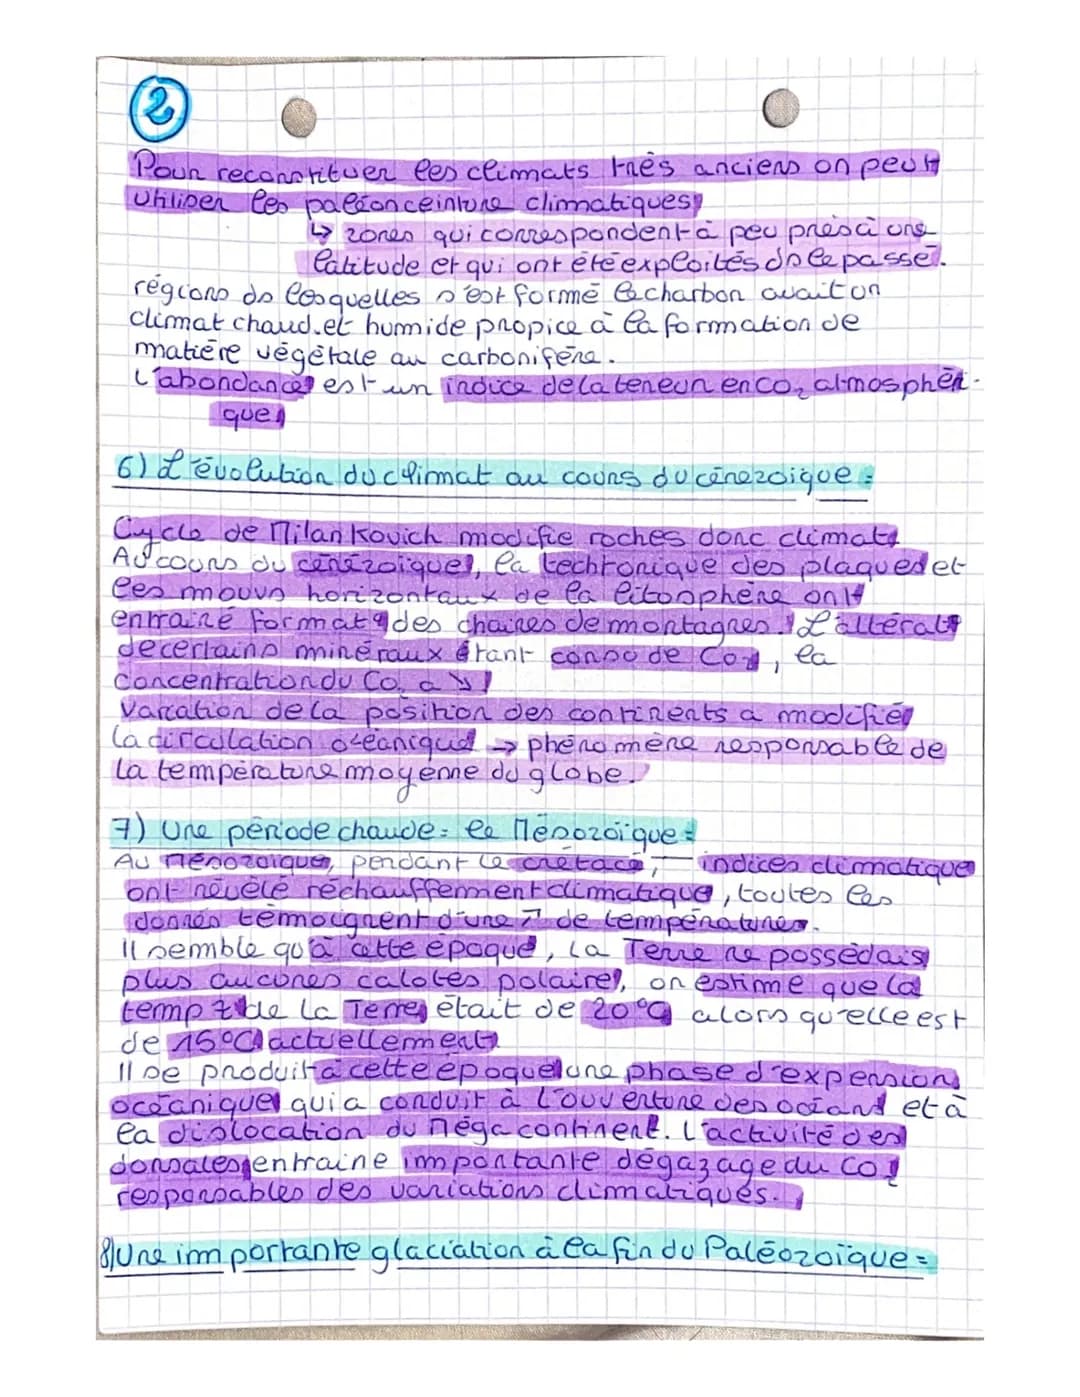 2
Pour reconstituer les climats très anciens on peut
utiliser les paléonceinture climatiques,
↳ zones qui correspondent à peu près à une
latitude et qui ont été exploités ds le passé.
régions ds lesquelles s'est formé le charbon avait un
climat chaud et humide propice à la formation de
matière végétale au carbonifère.
L'abondance est un indice de la teneur en CO₂ atmosphéri-
que
6) L'évolution du climat au cours du cénozoïque :
Cycle de Milankovich modifie roches donc climat
Au cours du cénézoïque, la techtonique des plaques et
les mouvs horizontaux de la litosphère ont
entrainé format° des chaines de montagnes. L'altérat°
de certains minéraux étant conso de CO₂, la
concentration du CO₂ a ↘
Variation de la position des continents a modifié
la circulation océanique → phénomène responsable de
la température moyenne du globe.
7) Une période chaude : le Mésozoïque :
Au Mésozoïque, pendant le crétacé, indices climatique
ont révélé réchauffement climatique, toutes les
donnés témoignent d'une ↗ de températures.
Il semble qu'à cette époque, la Terre ne possédais
plus aucunes calotes polaire, on estime que la
temp de la Terre était de 20°C alors qu'elle est
de 15°C actuellement
Il se produit à cette époque une phase d'expension
océanique qui a conduit à l'ouverture des océans et à
la dislocation du Méga continent. L'activité des
dorsales entraine importante dégazage du CO₂
responsables des variations climatiques.
8) Une importante glaciation à la fin du Paléozoïque :